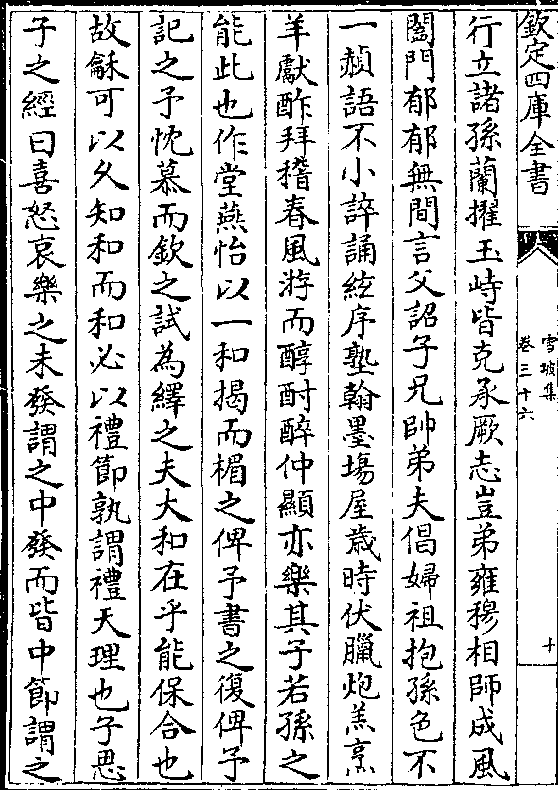 欽定四庫全書
雪坡集
卷三十六
十
行立諸孫蘭擢玉峙皆克承厥志豈弟雍穆相師成風
閤門郁郁無間言父詔子兄帥弟夫倡婦祖抱孫色不
一赬語不小誶誦絃序塾翰墨場屋嵗時伏臘炮羔烹
羊獻酢拜稽春風游而醇酎醉仲顯亦樂其子若孫之
能此也作堂燕怡以一和揭而楣之俾予書之復俾予
記之予忱慕而欽之試為繹之夫大和在乎能保合也
故龢可以久知和而和必以禮節孰謂禮天理也子思
子之經曰喜怒哀樂之未發謂之中發而皆中節謂之